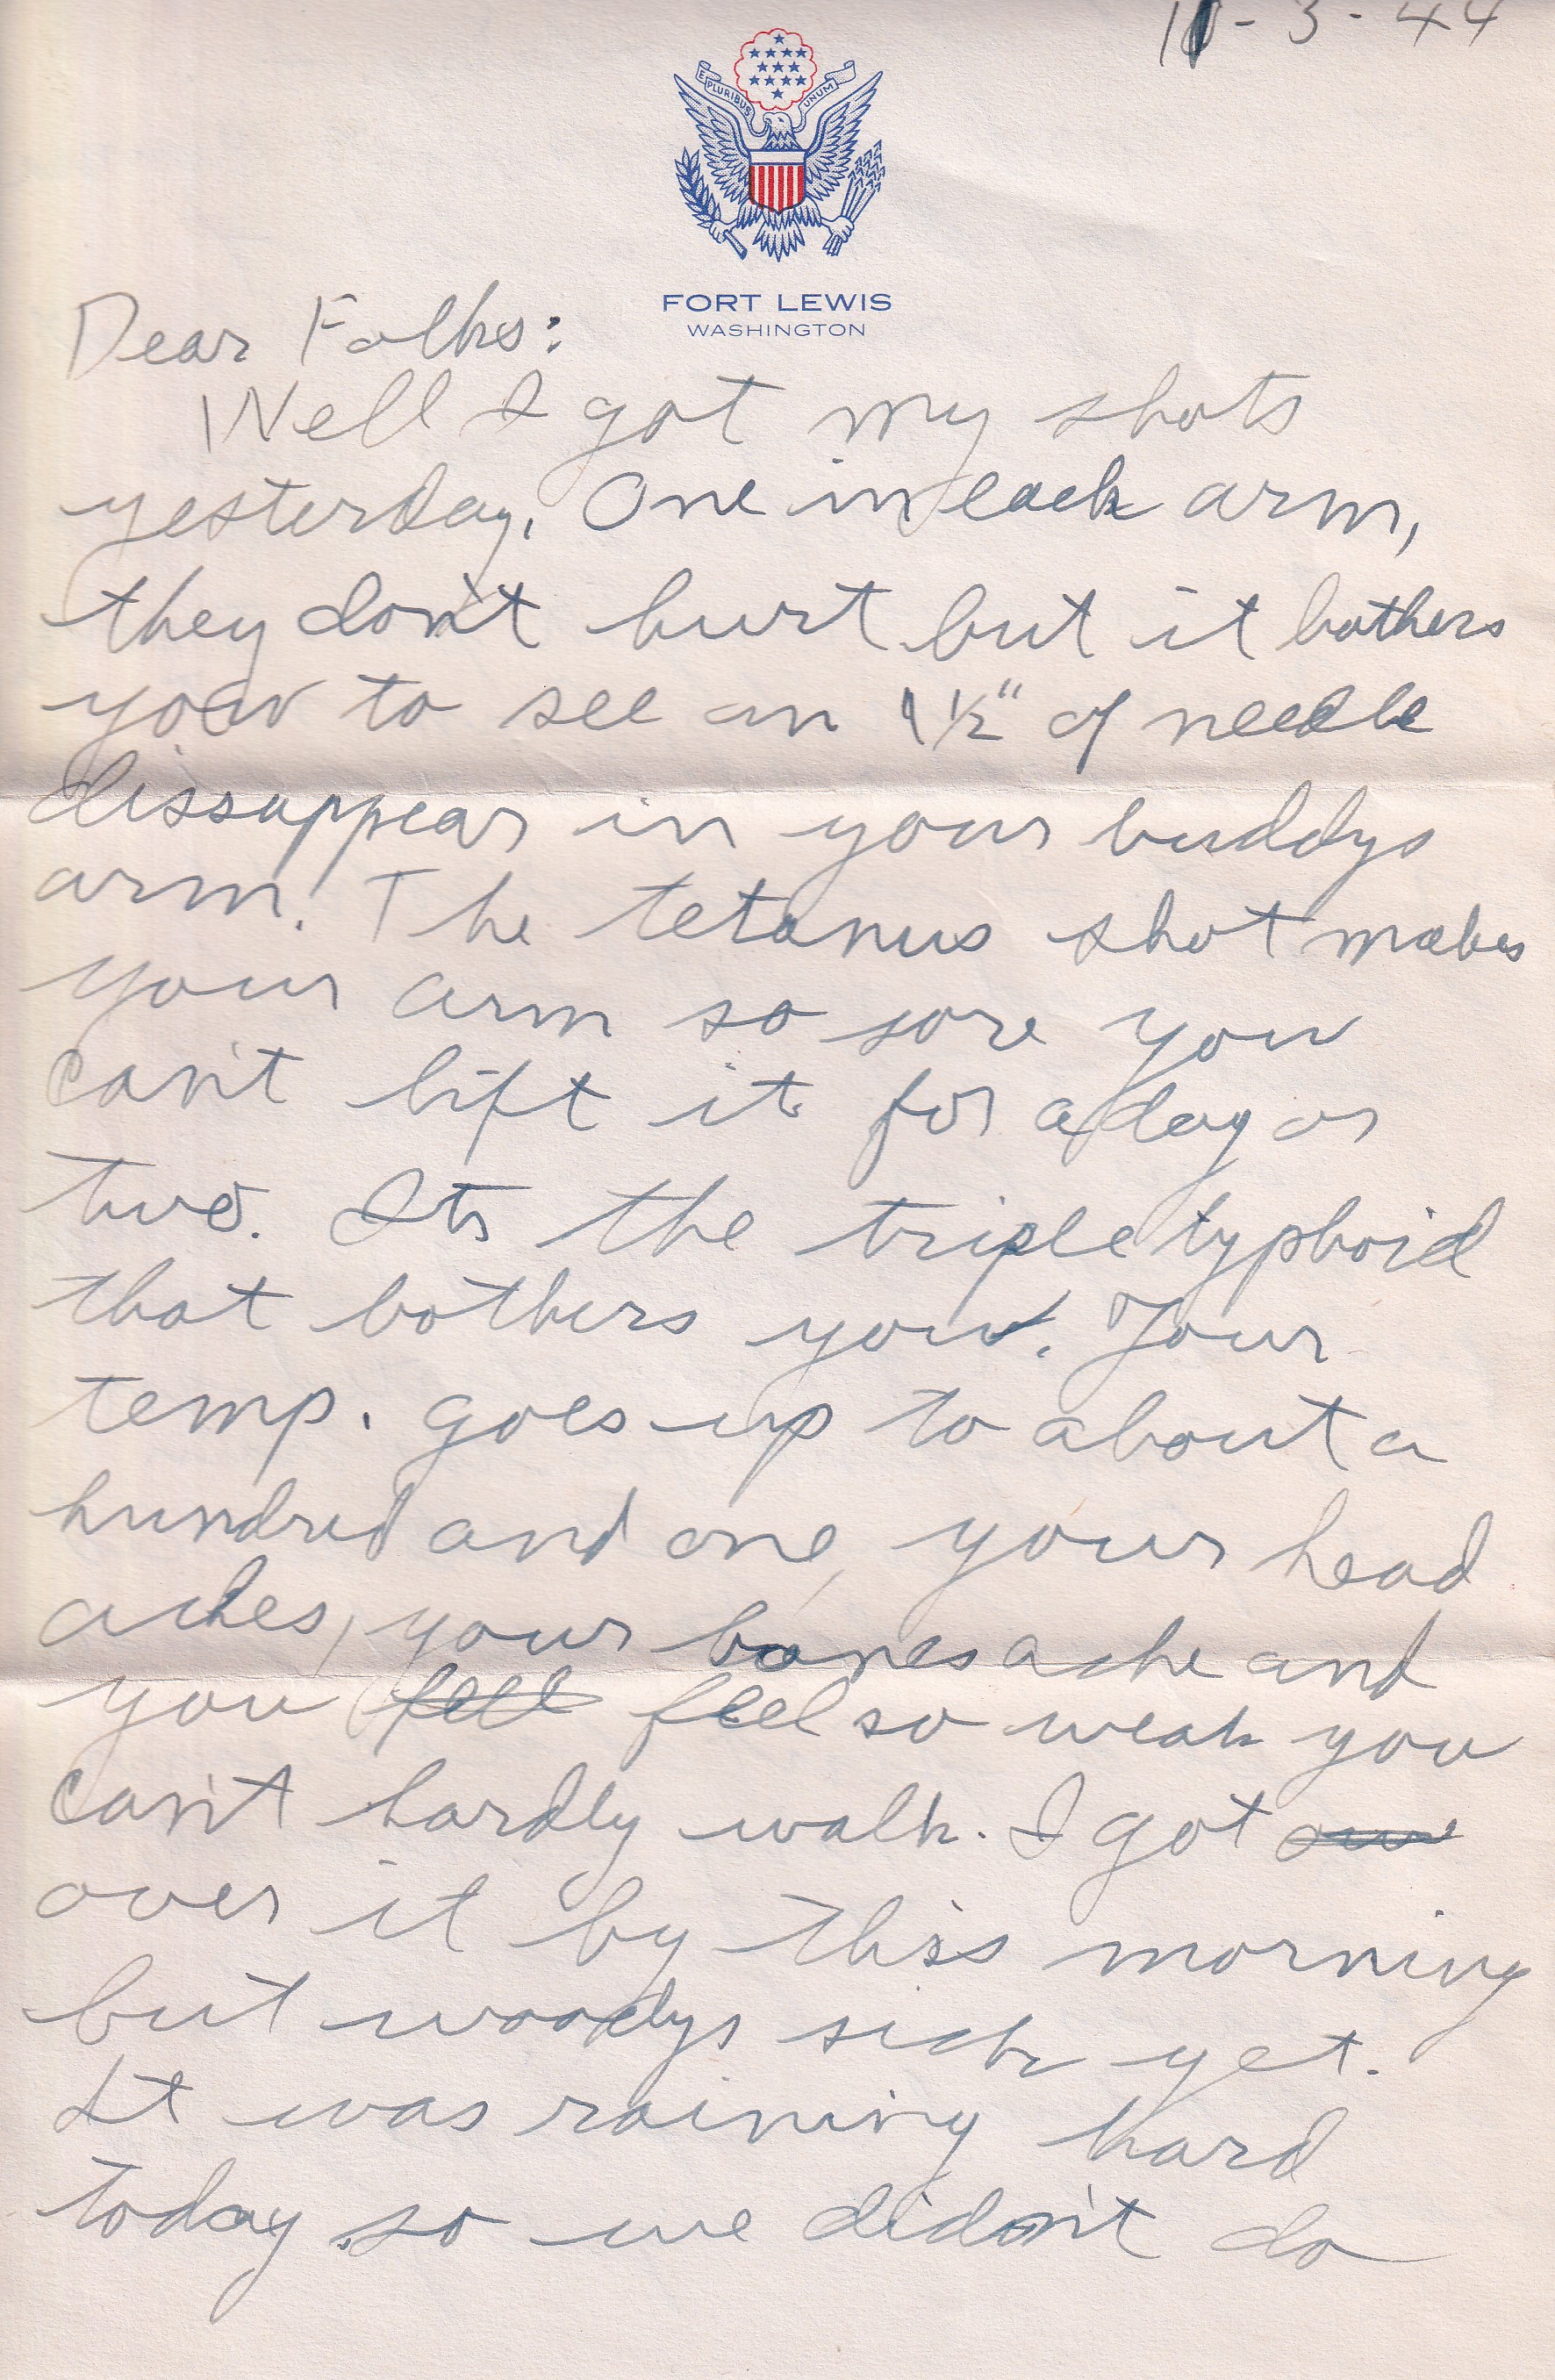 11-3-44
E PLURIBUS UNUM
FORT LEWIS
WASHINGTON
Dear Folks:
Well I got my shots
yesterday. One in each arm,
they don't hurt but it bothers
you to see an 1 1/2" of needle
dissappear in your buddys
arm. The tetanus shot makes
your arm so sore you
can't lift it for a day or
two. Its the triple typhoid
that bothers you. Your
temp. goes up to about a
hundred and one, your head
aches, your bones ache and
you fell feel so weak you
can't hardly walk. I got
over it by this morning
but woodys sick yet.
It was raining hard
today so we didn't do